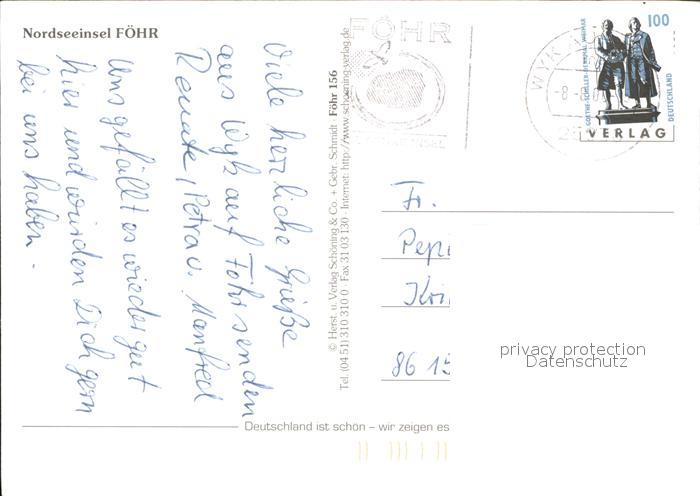 Nordseeinsel FÖHR
Viele herzliche Grüße
aus Wyk auf Föhr senden
Renate, Petra u. Manfred
Uns gefällt es wieder gut
hier und würden Dich gern
bei uns haben.
© Herst. u. Verlag Schöning & Co. + Gebr. Schmidt · Föhr 156
Tel. (04 51) 310 310 0 · Fax 31 03 130 · Internet: http://www.schoening-verlag.de
FÖHR
WYK
100
GOETHE-SCHILLER-DENKMAL WEIMAR
DEUTSCHLAND
VERLAG
Fr.
Pepi
86 15
privacy protection
Datenschutz
Deutschland ist schön – wir zeigen es